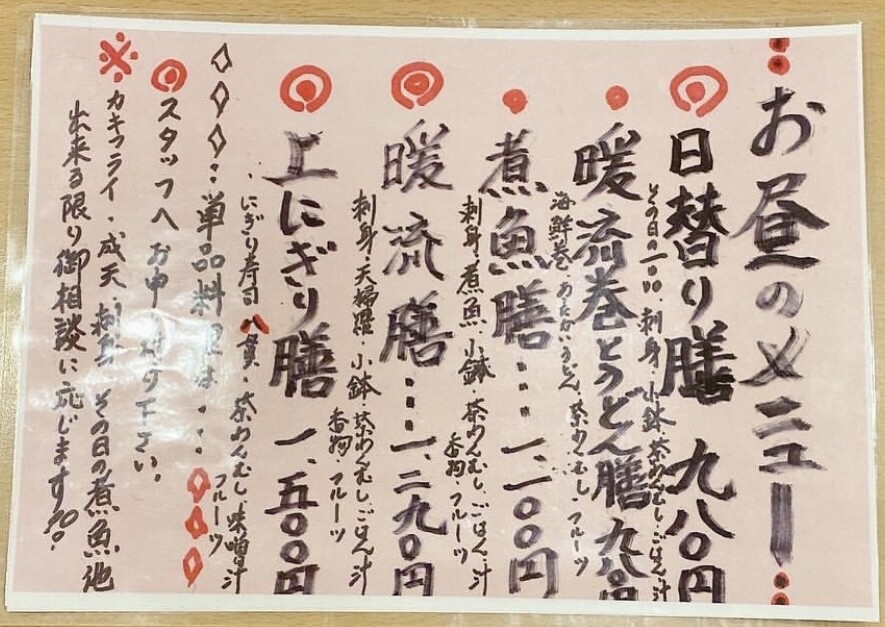 お昼のメニュー
日替り膳 九八0円
その日の一品、刺身・小鉢 茶わんむし、ごはん・汁
暖流巻とうどん膳 九八0円
海鮮巻・あたたかいうどん、茶わんむし・フルーツ
煮魚膳・・・一、一00円
刺身・煮魚・小鉢・茶わんむし、ごはん、汁
香物・フルーツ
暖流膳・・・一、二九0円
刺身・天婦羅・小鉢 茶わんむし、ごはん・汁
香物・フルーツ
上にぎり膳 一、五00円
にぎり寿司 八貫・茶わんむし、味噌汁
フルーツ
単品料理は・・・
スタッフへお申し付け下さい。
※カキフライ・成天・刺身・その日の煮魚他
出来る限り御相談に応じます